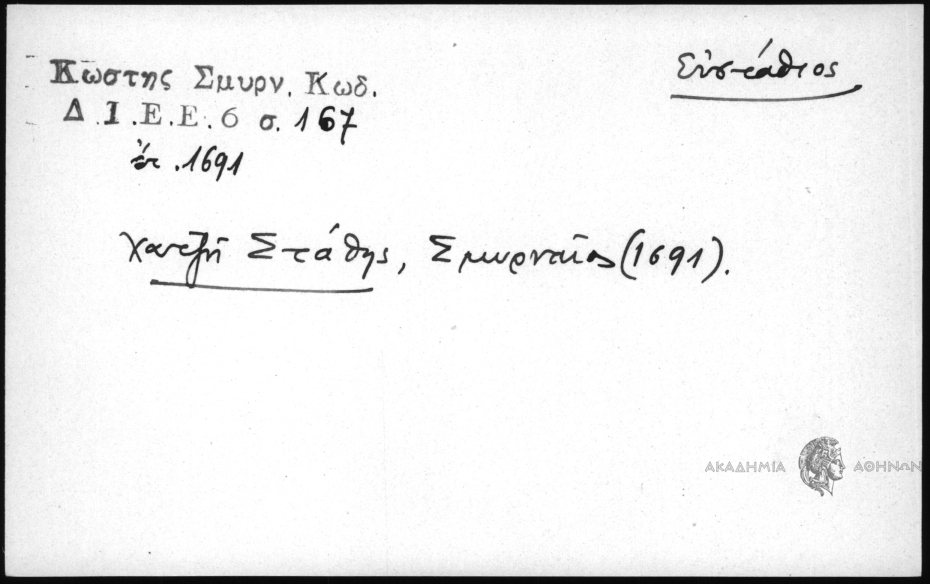 Εὐστάθιος
Κωστης Σμυρν. Κωδ.
Δ.Ι.Ε.Ε. 6 σ. 167
ἐτ. 1691
Χατζῆ Στάθης, Σμυρναῖος (1691).
ΑΚΑΔΗΜΙΑ ΑΘΗΝΩΝ